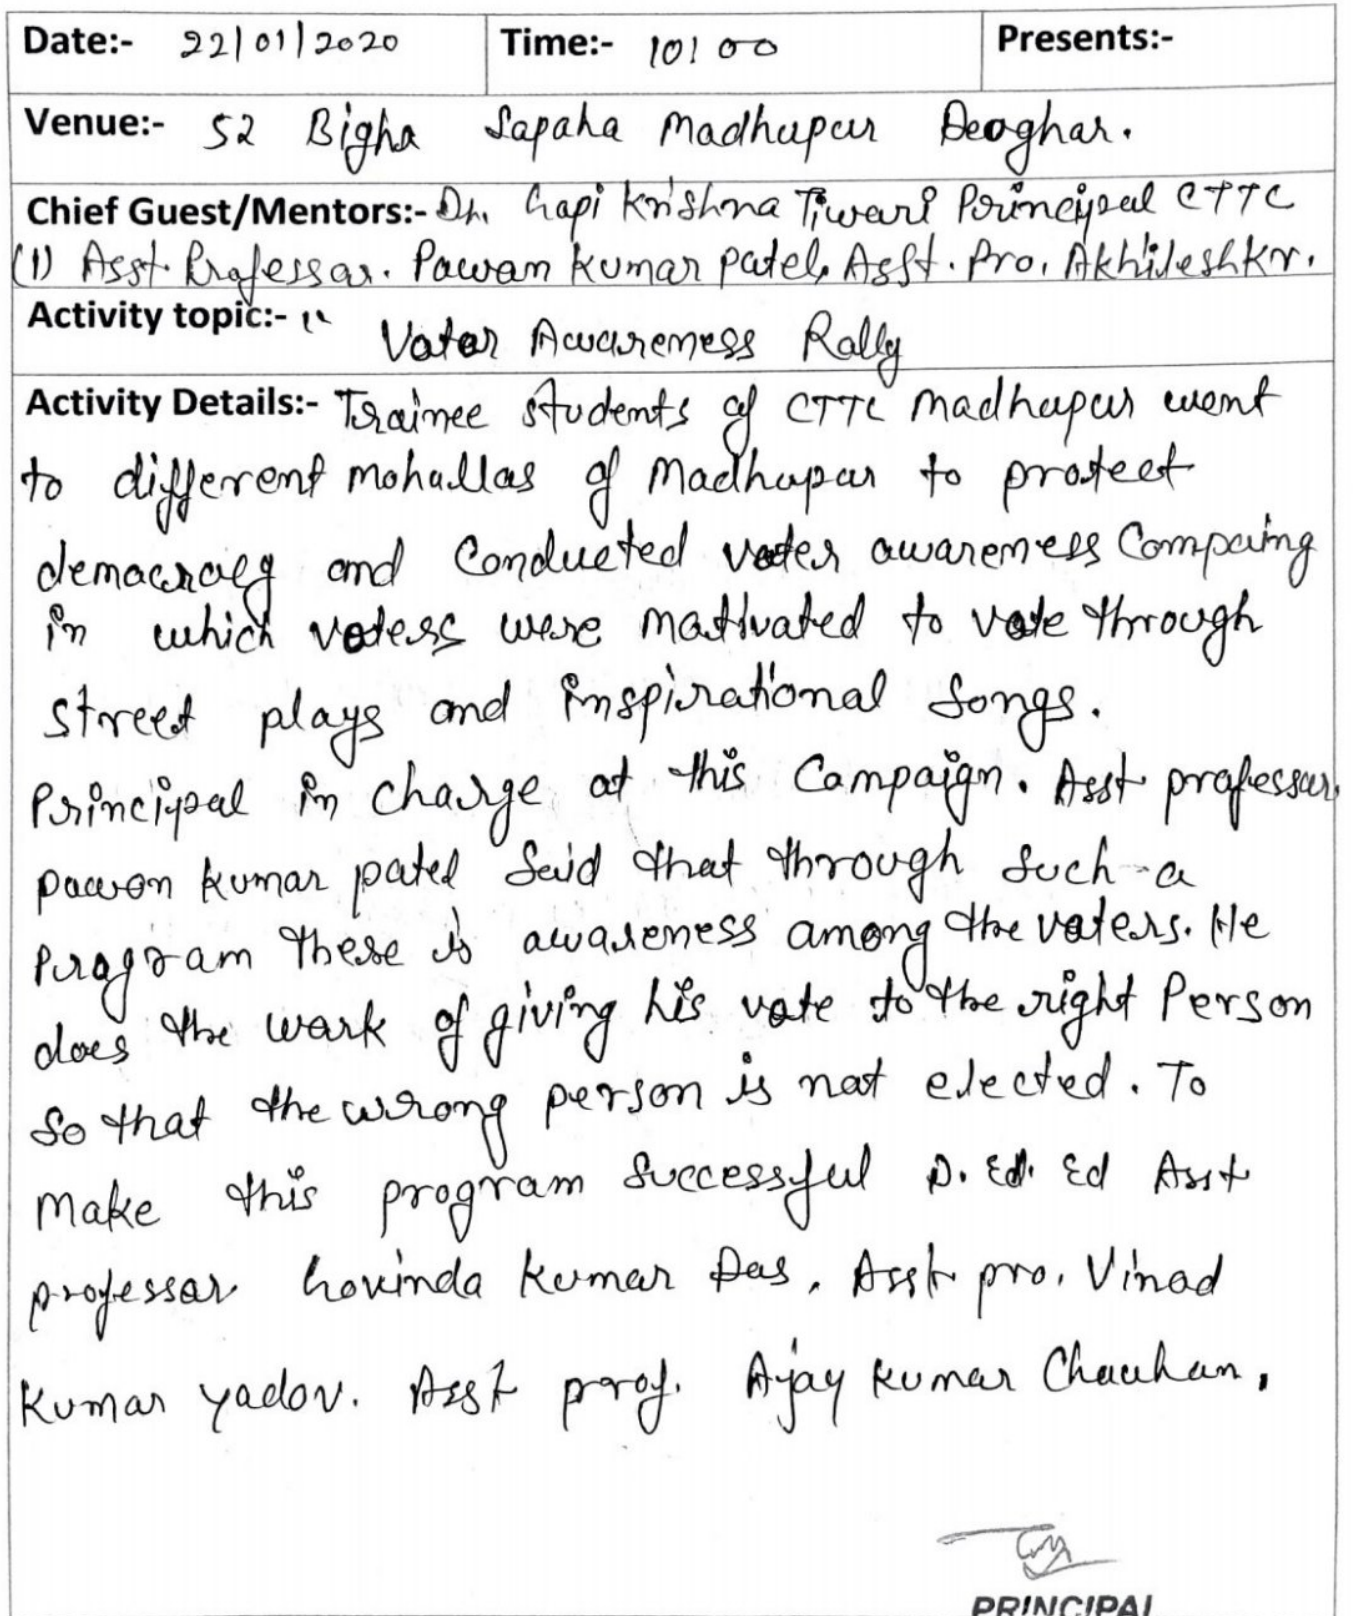 Date:- 22/01/2020 Time:- 10:00 Presents:-
Venue:- 52 Bigha Sapaha Madhupur Deoghar.
Chief Guest/Mentors:- Dr. Gopi Krishna Tiwari Principal CTTC
(1) Asst. Professor. Pawan Kumar patel, Asst. Pro. Akhilesh Kr.
Activity topic:- "
Voter Awareness Rally
Activity Details:- Trainee students of CTTC Madhupur went
to different mohallas of Madhupur to protect
democracy and Conducted voter awareness Compaing
in which voters were motivated to vote through
street plays and inspirational Songs.
Principal in charge at this Campaign. Asst professor.
pawan kumar patel Said that through Such a
Program there is awareness among the voters. He
does the work of giving his vote to the right Person
So that the wrong person is not elected. To
Make this program Successful D. Ed. Ed Asst
professor Govinda Kumar Das, Asst pro. Vinod
Kumar yadov. Asst prof. Ajay Kumar Chauhan,
PRINCIPAL